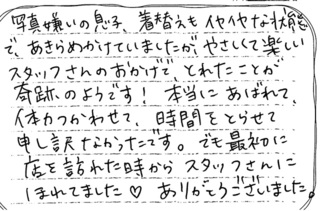 写真嫌いの息子、着替えもイヤイヤな状態
で、あきらめかけていましたが、やさしくて楽しい
スタッフさんのおかげで、とれたことが
奇跡のようです！ 本当にあばれて、
体力つかわせて、時間をとらせて
申し訳なかったです。でも最初に
店を訪れた時からスタッフさんに
ほれてました♡ ありがとうございました。